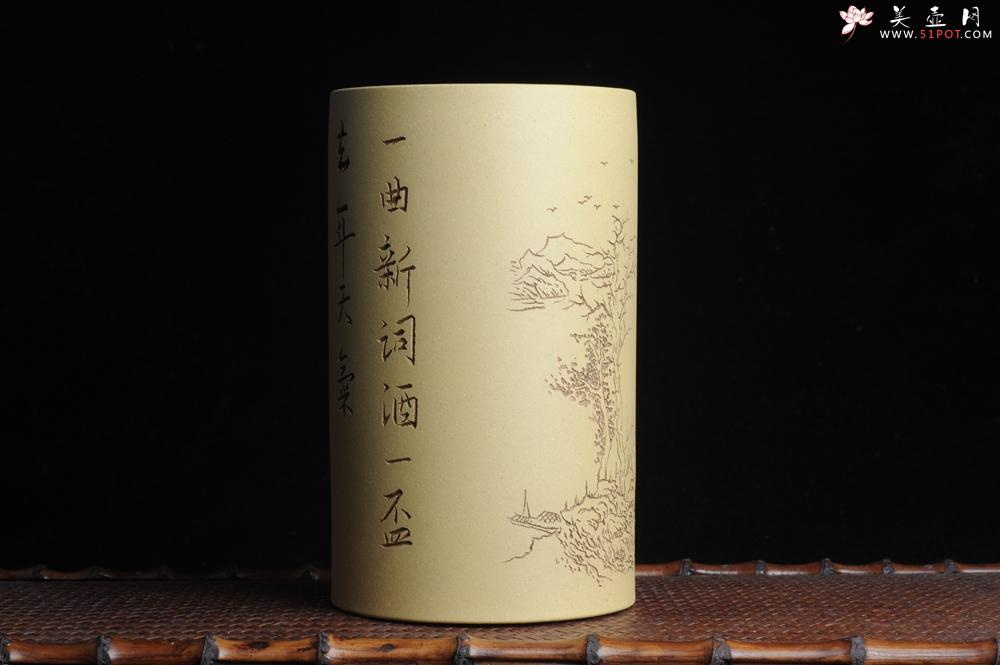 一曲新词酒一盃
去年天氣
美壶网
WWW.51POT.COM